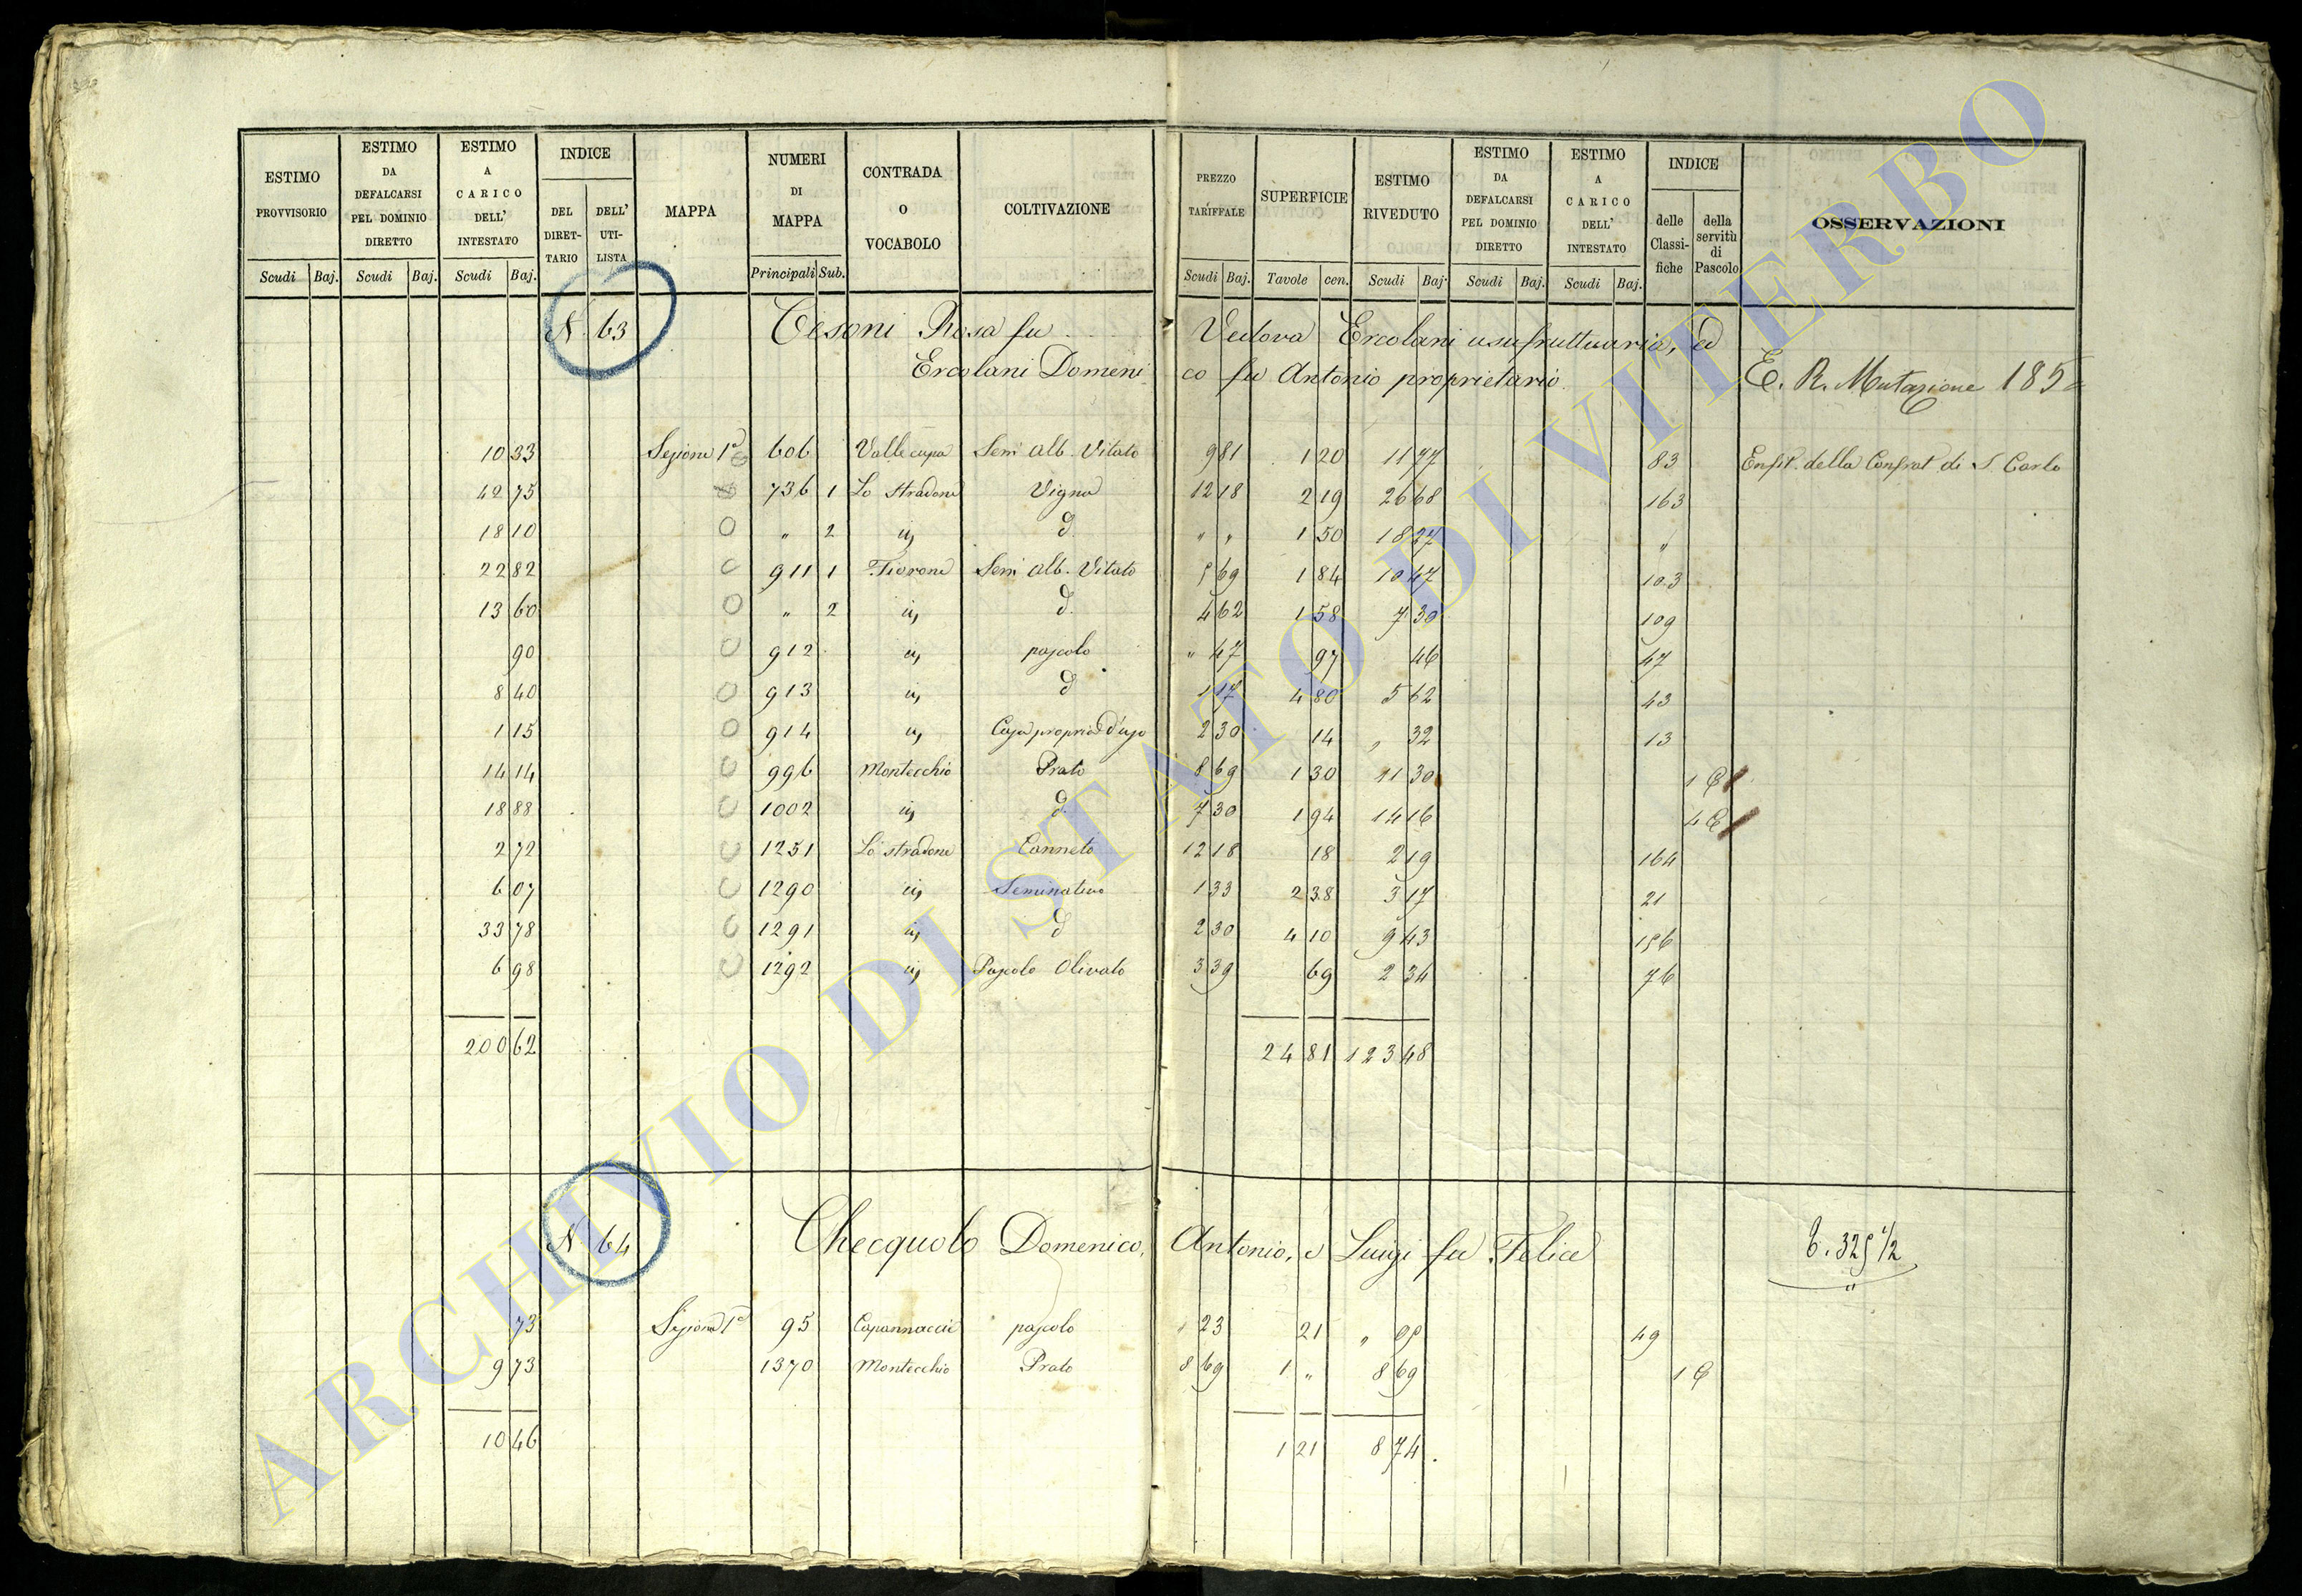 ESTIMO PROVVISORIO | ESTIMO DA DEFALCARSI PEL DOMINIO DIRETTO | ESTIMO A CARICO DELL' INTESTATO | INDICE | MAPPA | NUMERI DI MAPPA | CONTRADA O VOCABOLO | COLTIVAZIONE | PREZZO TARIFFALE | SUPERFICIE | ESTIMO RIVEDUTO | ESTIMO DA DEFALCARSI PEL DOMINIO DIRETTO | ESTIMO A CARICO DELL' INTESTATO | INDICE | OSSERVAZIONI
DEL DIRETTARIO | DELL' UTILISTA | delle Classifiche | della servitù di Pascolo
Scudi | Baj. | Scudi | Baj. | Scudi | Baj. | Principali | Sub. | Scudi | Baj. | Tavole | cen. | Scudi | Baj. | Scudi | Baj. | Scudi | Baj.
N. 63 Cesoni Rosa fu Vedova Ercolani usufruttuaria, ed
Ercolani Domenico fu Antonio proprietario. E. R. Mutazione 185
10 33 Sezione 1a 606 Valle cupa Sem. Alb. Vitato 9 81 1 20 11 77 83 Enfit. della Confrat. di S. Carlo
42 75 736 1 Lo stradone Vigna 12 18 2 19 26 68 163
18 10 " 2 id. d. " " 1 50 18 27 "
22 82 911 1 Fiorone Sem. Alb. Vitato 5 69 1 84 10 47 103
13 60 " 2 id. d. 4 62 1 58 7 30 109
90 912 id. pascolo " 47 97 46 47
8 40 913 id. d. 1 17 4 80 5 62 43
1 15 914 id. Casa propria d'uso 2 30 14 " 32 13
14 14 996 Montecchio Prato 8 69 1 30 11 30 1
18 88 1002 id. d. 7 30 1 94 14 16 4
2 72 1251 Lo stradone Canneto 12 18 18 2 19 164
6 07 1290 id. Seminativo 1 33 2 38 3 17 21
33 78 1291 id. d. 2 30 4 10 9 43 156
6 98 1292 id. Pascolo Olivato 3 39 69 2 34 76
200 62 24 81 123 48
N. 64 Checquolo Domenico, Antonio, e Luigi fu Felice 325 1/2
73 Sezione 1a 95 Capannaccie pascolo " 23 21 " 05 49
9 73 1370 Montecchio Prato 8 69 1 " 8 69 1
10 46 1 21 8 74
ARCHIVIO DI STATO DI VITERBO